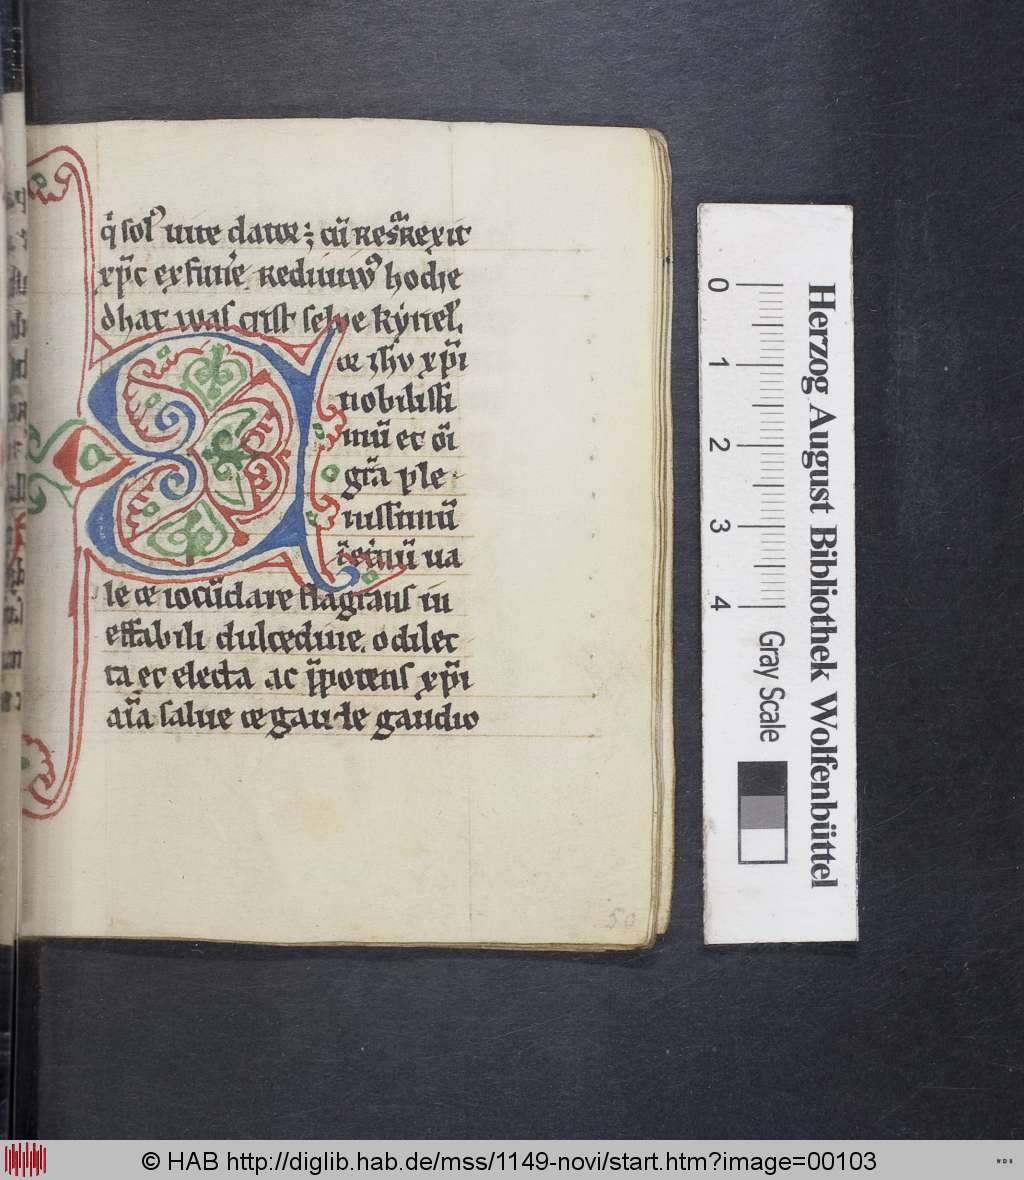 q̇ sol᾽ uite dator ; cū resͣrexit
xp̄c ex fun͛e . Rediuiuꝰ hodie
dhat was crist selue kyriel᾽.
Aue ihu xp̄i
nobilissi
mū et oi̅
gr̄a ple
nissimū
le te iocūdare flagrans in
effabili dulcedine. o dilec
ta et electa ac p̄potens xp̄i
aīa salue te gaude gaudio
50
0 1 2 3 4
Gray Scale
Herzog August Bibliothek Wolfenbüttel
© HAB http://diglib.hab.de/mss/1149-novi/start.htm?image=00103